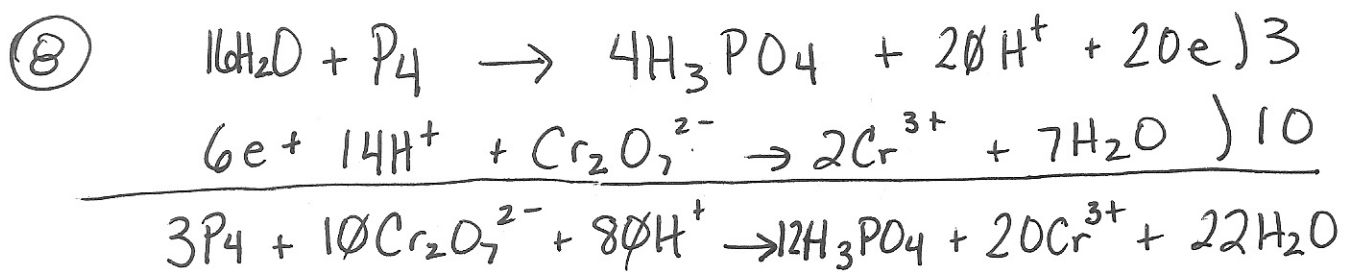 8 16H₂O + P4 → 4H₃PO4 + 20H⁺ + 20e)3
6e + 14H⁺ + Cr₂O₇²⁻ → 2Cr³⁺ + 7H₂O )10
3P4 + 10Cr₂O₇²⁻ + 80H⁺ → 12H₃PO4 + 20Cr³⁺ + 22H₂O